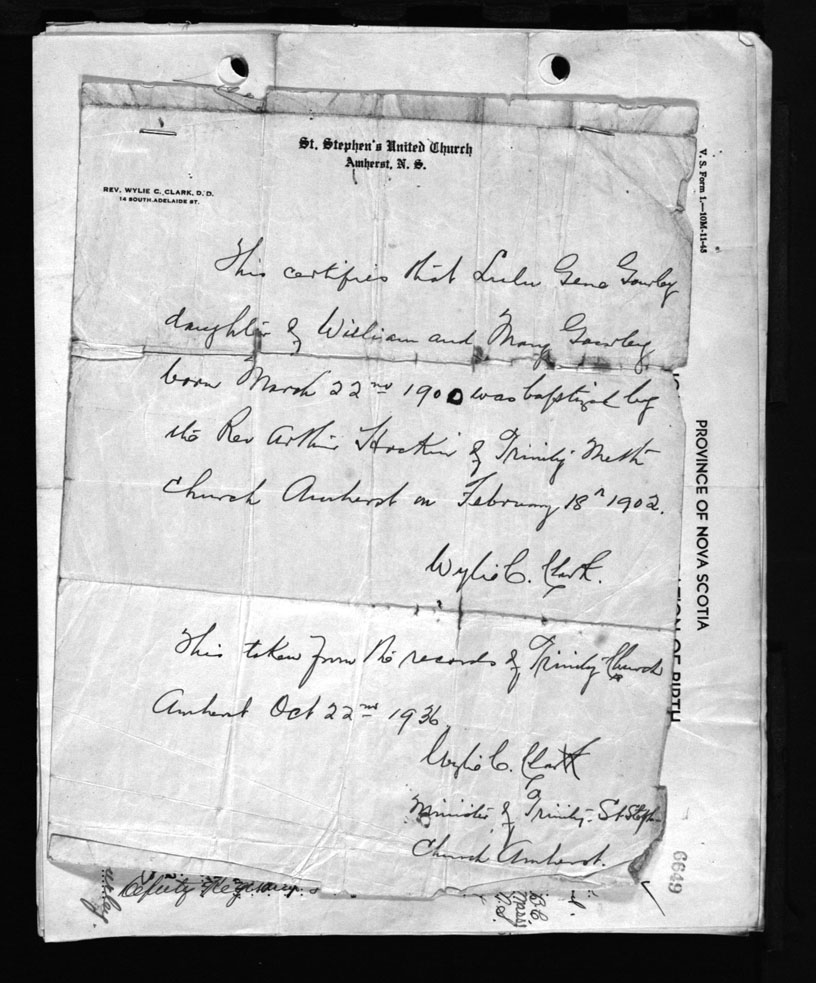 St. Stephen's United Church
Amherst, N. S.
REV. WYLIE C. CLARK, D. D.
14 SOUTH ADELAIDE ST.
This certifies that Lulu Gene Gourley
daughter of William and Mary Gourley
born March 22nd 1900 was baptized by
the Rev Arthur Hockin of Trinity Meth
Church Amherst on February 18th 1902.
Wylie C. Clark.
This taken from the records of Trinity Church
Amherst Oct 22nd 1936
Wylie C. Clark
Minister of Trinity-St Steph
Church Amherst.
V. S. Form 1.—10M-11-43
PROVINCE OF NOVA SCOTIA
ATION OF BIRTH
6649
Deputy